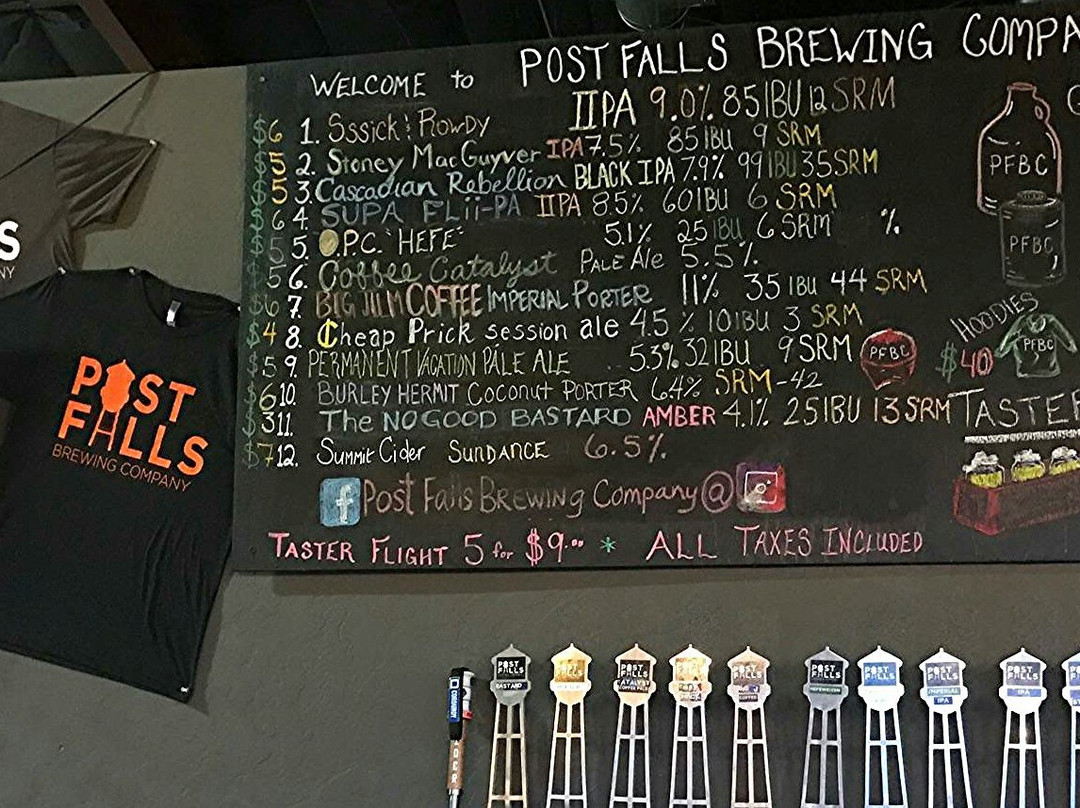 WELCOME to POST FALLS BREWING COMPA
$6 1. Sssick & Rowdy IIPA 9.0% 85IBU 12 SRM
$5 2. Stoney MacGuyver IPA 7.5% 85IBU 9 SRM
$5 3. Cascadian Rebellion BLACK IPA 7.9% 99IBU 35SRM
$6 4. SUPA FLii-PA IIPA 8.5% 60IBU 6 SRM
$5 5. O.P.C. "HEFE" 5.1% 25IBU 6 SRM %
$5 6. Coffee Catalyst PALE Ale 5.5%
$6 7. BIG JILM COFFEE IMPERIAL PORTER 11% 35IBU 44 SRM
$4 8. Cheap Prick session ale 4.5% 10IBU 3 SRM
$5 9. PERMANENT VACATION PALE ALE 5.3% 32IBU 9SRM
$6 10. BURLEY HERMIT Coconut PORTER 6.4% SRM-42
$3 11. The NO GOOD BASTARD AMBER 4.1% 25IBU 13SRM
$7 12. Summit Cider SUNDANCE 6.5%
f Post Falls Brewing Company @
TASTER FLIGHT 5 for $9.00 * ALL TAXES INCLUDED
G
PFBC
PFBC
HOODIES
PFBC
$40
PFBC
TASTER
S
NY
POST
FALLS
BREWING COMPANY
POST FALLS
BASTARD
POST FALLS
POST FALLS
CATALYST
POST FALLS
POST FALLS
COFFEE
POST FALLS
HEFEWEIZEN
POST FALLS
POST FALLS
IMPERIAL
IPA
POST FALLS
IPA